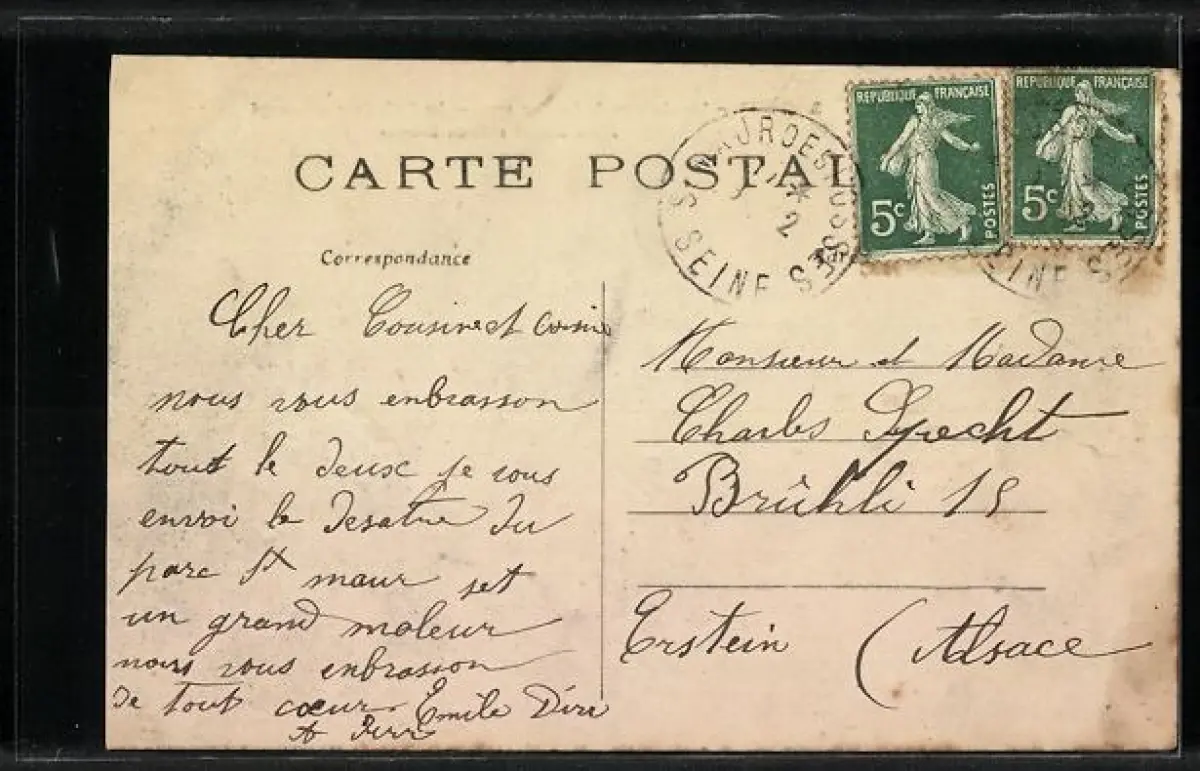 CARTE POSTALE
ST MAUR DES FOSSES
2
SEINE
REPUBLIQUE FRANÇAISE
5c
POSTES
REPUBLIQUE FRANÇAISE
5c
POSTES
Correspondance
Cher Cousin et cousine
nous vous enbrasson
tout le deux je vous
envoi le desatre du
parc St maur set
un grand maleur
nous vous enbrasson
de tout cœur Emile
Monsieur et Madame
Charles
Brûhli 15
Erstein (Alsace